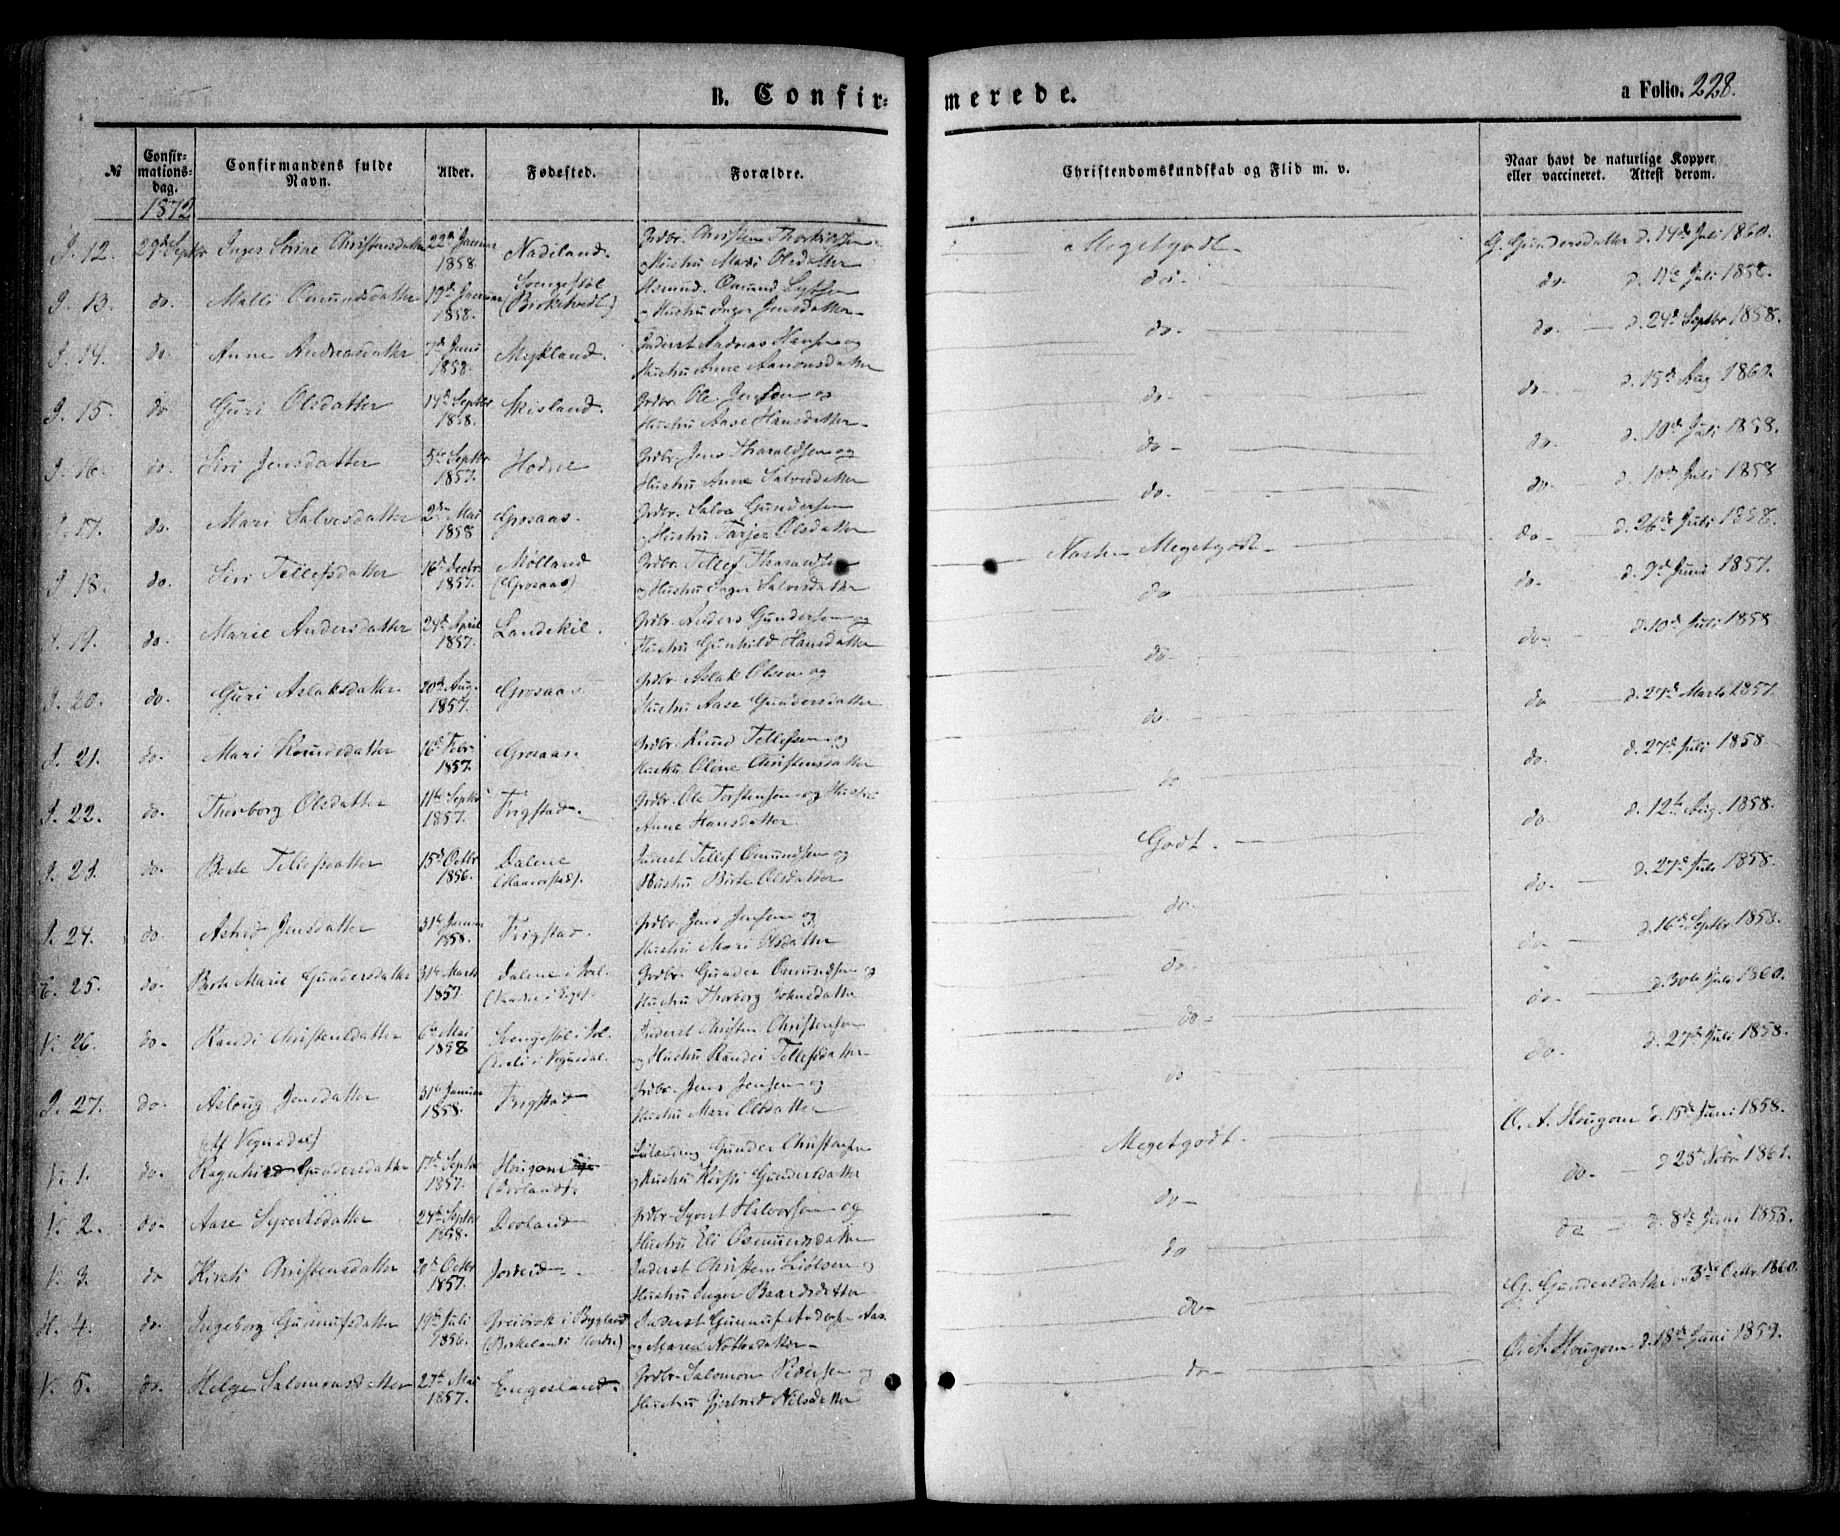 B. Confir-merede.
a Folio. 228.
№ Confir-mations-dag. Confirmandens fulde Navn. Alder. Fødested. Forældre. Christendomskundskab og Flid m. v. Naar havt de naturlige Kopper eller vaccineret. Attest derom.
1872
I. 12. 29de Septbr Inger Serine Christensdatter 22de Januar 1858. Nadeland. Grdbr. Christen Thorkildsen og Hustru Mari Olsdatter Megetgodt G. Gundersdatter d. 14de Juli 1860.
I. 13. do. Malli Omundsdatter 19de Januar 1858. (Birketvedt) Husmd. Omund og Hustru Inger Jensdatter do. do. Juli 1858.
I. 14. do. Anne Andreasdatter 7de Juni 1858. Mykland. Inderst Andreas Hansen og Hustru Anne Aanonsdatter do. do. d. 24de Septbr 1858.
I. 15. do Guri Olsdatter 17de Septbr 1858. Skisland. Grdbr. Ole Jensen og Hustru Aase Hansdatter do. do d. 15de Aug 1860.
I. 16. do. Siri Jensdatter 5te Septbr 1857. Hodne Grdbr. Jens Tharaldsen og Hustru Anne Salvesdatter do- do. d. 10de Juli 1858.
I. 17. do. Mari Salvesdatter 2den Mai 1858 Grosaas. Grdbr. Salve Gundersen og Hustru Tarjer Olsdatter do. do- d. 10de Juli 1858
I. 18. do. Siri Tellefsdatter 16de Decbr 1857. Mølland (Grosaas) Grdbr. Tellef Tharaldsen og Hustru Inger Salvesdatter Næsten Megetgodt do- d. 26de Juli 1858.
I. 19. do. Marie Andersdatter 24de April 1857. Landekil. Grdbr. Anders Gundersen og Hustru Gunhild Hansdatter do do- d. 9de Juni 1857.
I. 20. do. Guri Aslaksdatter 20de Aug. 1857. Grosaas Grdbr. Aslak Olsen og Hustru Aase Gundersdatter do- do- d. 10de Juli 1858
I. 21. do- Mari Knudsdatter 16de Febr 1857. Grosaas. Grdbr. Knud Tellefsen og Hustru Oline Christensdatter do do d. 27de Marts 1857.
I. 22. do. Thorborg Olsdatter 11te Septbr 1857. Frigstad. Grdbr. Ole Torstensen og Hustru Anne Hansdatter do do. d. 27de Juli 1858.
I. 23. do. Berte Tellefsdatter 15de Octbr 1856. Dalene (Haaverstad). Inderst Tellef Omundsen og Hustru Birte Olsdatter Godt. do- d. 12te Aug. 1858.
I. 24. do. Astrid Jensdatter 31te Januar 1858. Frigstad. Grdbr. Jens Jensen og Hustru Mari Olsdatter do. do- d. 27de Juli 1858.
E. 25. do- Berte Marie Gundersdatter 31te Marts 1857. Dalene i Ivel. Grdbr. Gunder Osmundsen og Hustru Thorborg Johnsdatter do. do d. 16de Septbr 1858.
V. 26. do- Randi Christensdatter 6te Mai 1858 Inderst Christen Christensen og Hustru Randei Tellefsdatter do- do- d. 30te Juli 1860.
I. 27. do- Aslaug Jensdatter 31te Januar 1858. Frigstad Grdbr. Jens Jensen og Hustru Mari Olsdatter do do. d. 27de Juli 1858.
(Af Vegusdal)
V. 1. do. Ragnhild Gundersdatter 17de Septbr 1857. Hougom (Dovland). Gunder Christensen og Hustru Kirsti Gundersdatter Megetgodt. O. A. Hougom d. 15de Juni 1858.
V. 2. do- Aase Syvertsdatter 24de Septbr 1858. Dovland Grdbr. Syvert Halvorsen og Hustru Eli Osmundsdatter do- do- d. 25de Novbr 1861.
V. 3. do Kirsti Christensdatter 20de Octbr 1857. Inderst Christen Liølsen og Hustru Inger Baardsdatter do do d. 8de Juni 1858.
H. 4. do. Ingeborg Gunnufsdatter 19de Juli 1856. i Bygland (Birkeland i Herefos) Inderst Gunnuf Anders. Aas. og Maren do- G. Gundersdatter 3die Octbr 1860.
V. 5. do. Helge Salomonsdatter 27de Mai 1857. Engesland. Grdbr. Salomon Pedersen og Hustru Gjertrud Nilsdatter do- O. A. Hougom d. 18de Juni 1859.